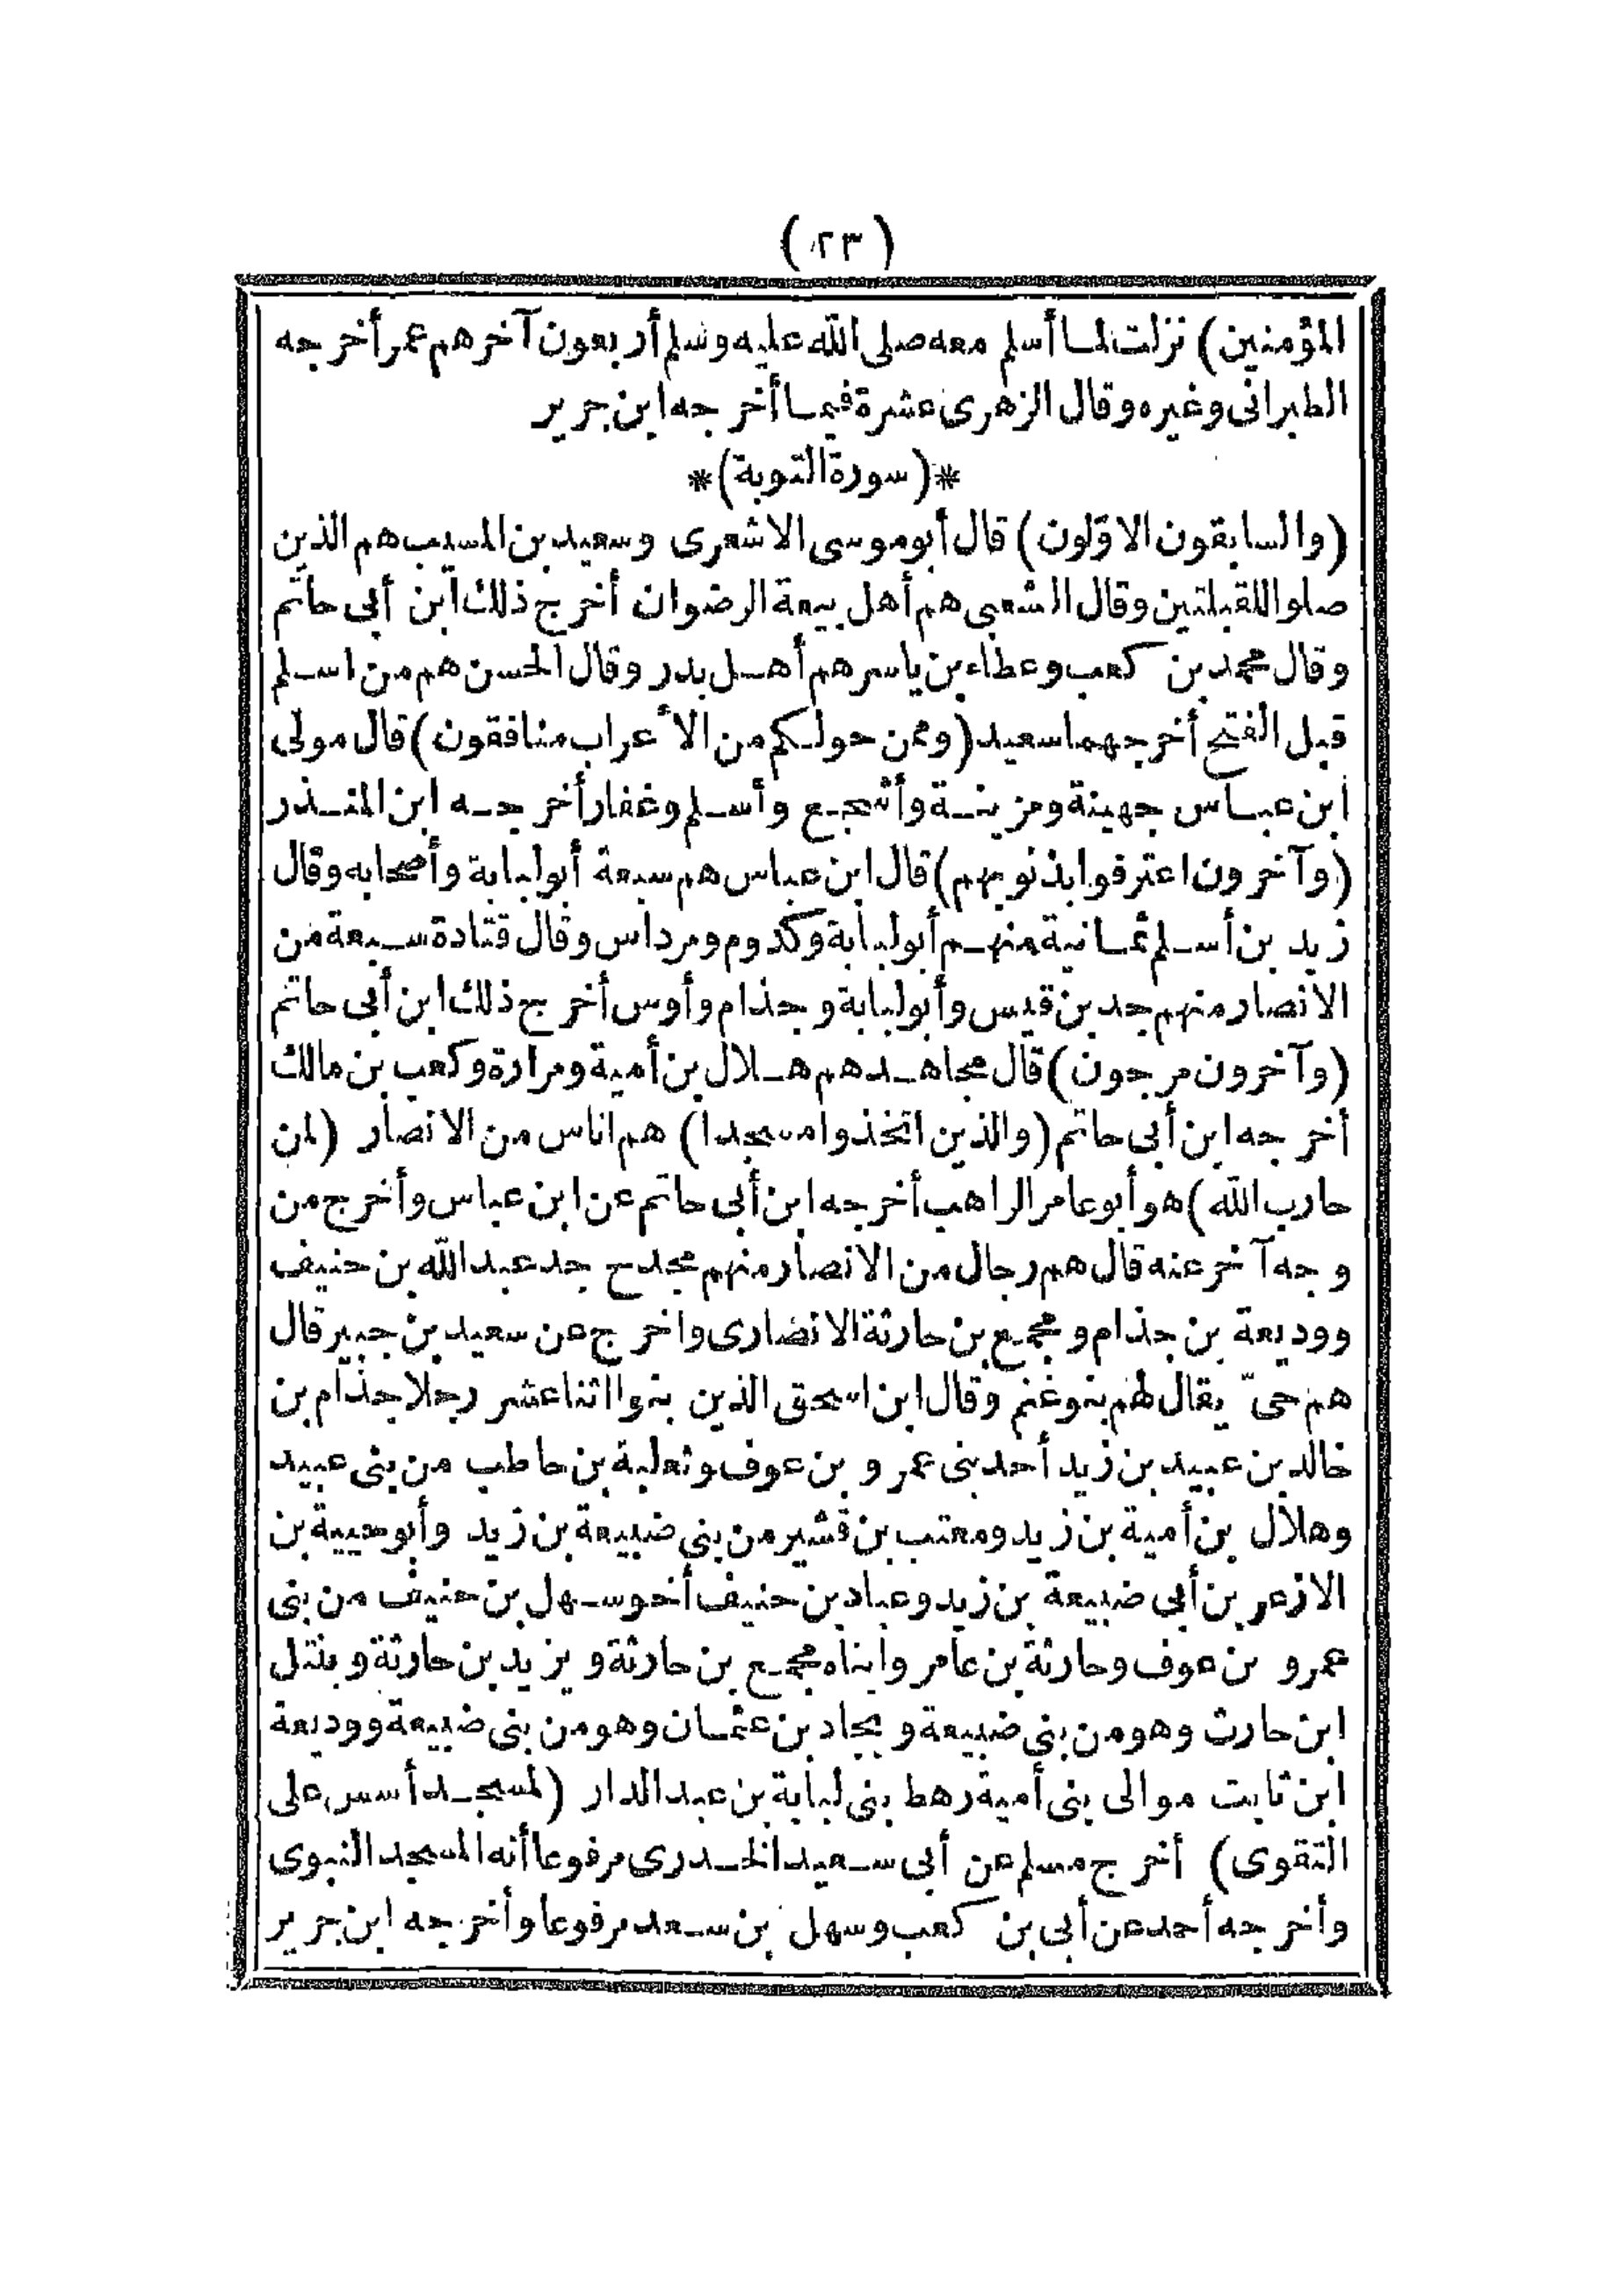 (٢٣)
المؤمنين) نزلت لما أسلم معه صلى الله عليه وسلم أربعون آخرهم عمر أخرجه
الطبرانى وغيره وقال الزهرى عشرة فيما أخرجه ابن جرير
*(سورة التوبة)*
(والسابقون الاوّلون) قال أبو موسى الاشعرى وسعيد بن المسيب هم الذين
صلوا للقبلتين وقال الشعبى هم أهل بيعة الرضوان أخرج ذلك ابن أبى حاتم
وقال محمد بن كعب وعطاء بن ياسر هم أهل بدر وقال الحسن هم من اسلم
قبل الفتح أخرجهما سعيد (وممن حولكم من الأعراب منافقون) قال مولى
ابن عباس جهينة ومزينة وأشجع وأسلم وغفار أخرجه ابن المنذر
(وآخرون اعترفوا بذنوبهم) قال ابن عباس هم سبعة أبو لبابة وأصحابه وقال
زيد بن أسلم ثمانية منهم أبو لبابة وكدوم ومرداس وقال قتادة سبعة من
الانصار منهم جد بن قيس وأبو لبابة وجذام وأوس أخرج ذلك ابن أبى حاتم
(وآخرون مرجون) قال مجاهد هم هلال بن أمية ومرارة وكعب بن مالك
أخرجه ابن أبى حاتم (والذين اتخذوا مسجدا) هم اناس من الانصار (لمن
حارب الله) هو أبو عامر الراهب أخرجه ابن أبى حاتم عن ابن عباس وأخرج من
وجه آخر عنه قال هم رجال من الانصار منهم مجدح جد عبد الله بن حنيف
ووديعة بن جذام ومجمع بن حارثة الانصارى واخرج عن سعيد بن جبير قال
هم حىّ يقال لهم بنو غنم وقال ابن اسحق الذين بنوا اثنا عشر رجلا جذام بن
خالد بن عبيد بن زيد أحد بنى عمرو بن عوف وثعلبة بن حاطب من بنى عبيد
وهلال بن أمية بن زيد ومعتب بن قشير من بنى ضبيعة بن زيد وأبو حبيبة بن
الازعر بن أبى ضبيعة بن زيد وعباد بن حنيف أخو سهل بن حنيف من بنى
عمرو بن عوف وحارثة بن عامر وابناه مجمع بن حارثة ويزيد بن حارثة ونبتل
ابن حارث وهو من بنى ضبيعة وبجاد بن عثمان وهو من بنى ضبيعة ووديعة
ابن ثابت موالى بنى أمية رهط بنى لبابة بن عبد الدار (لمسجد أسس على
التقوى) أخرج مسلم عن أبى سعيد الخدرى مرفوعا أنه المسجد النبوى
وأخرجه أحمد عن أبى بن كعب وسهل بن سعد مرفوعا وأخرجه ابن جرير